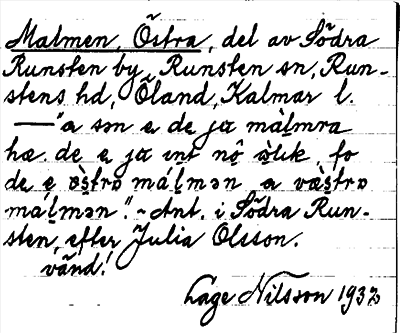 Malmen, Östra, del av Södra
Runsten by, Runsten sn, Run-
stens hd, Öland, Kalmar l.
— "a sən e de ja màḻmra
hæ. de e ja int nô o̱lik, fo
de e o̱s̱trə máḻmən a væ̀s̱trə
máḻmən". - Ant. i Södra Run-
sten, efter Julia Olsson.
vänd!
Lage Nilsson 1937